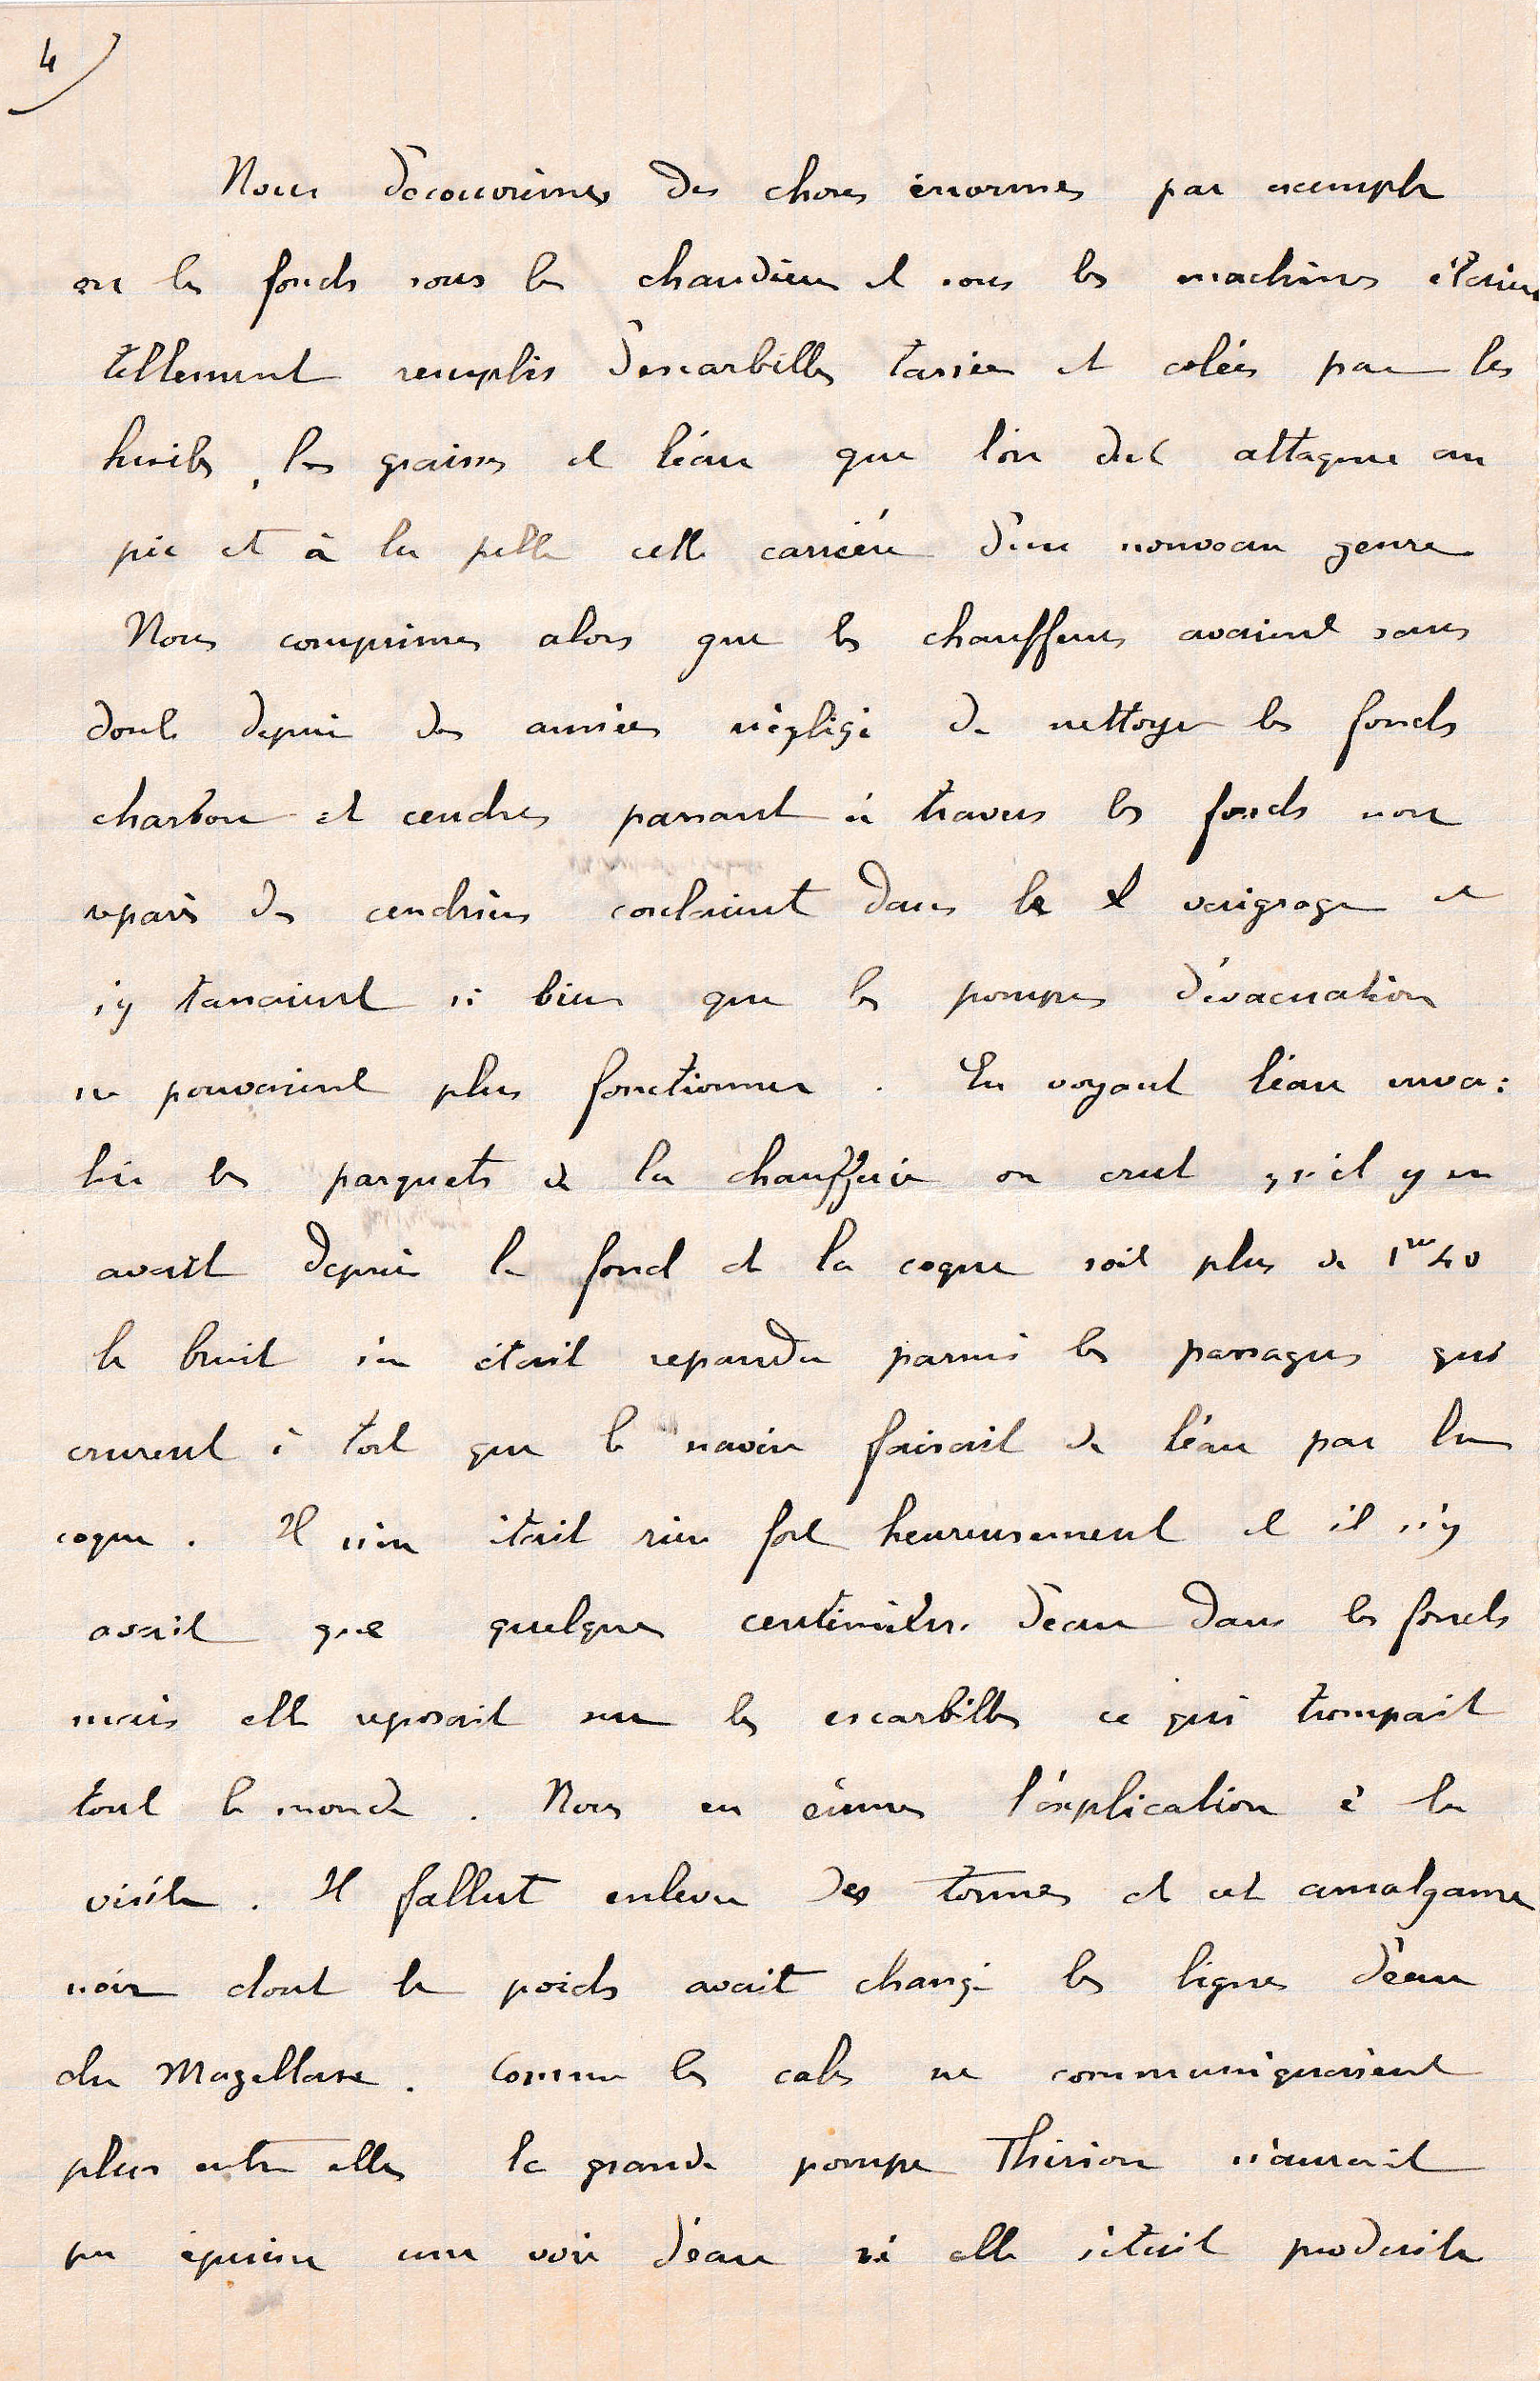 4
Nous découvrimes des choses énormes par exemple
les fonds sous les chaudières et sous les machines étaient
tellement remplis d'escarbilles tassées et colées par les
huiles, les graisses et l'éau que l'on dut attaquer au
pic et à la pelle cette carrière d'un nouveau genre
Nous comprimes alors que les chauffeurs avaient sans
doute depuis des années négligé de nettoyer les fonds
charbon et cendres passant à travers les fonds non
réparés des cendriers coulaient dans le vaigrage et
s'y tassaient si bien que les pompes d'évacuation
ne pouvaient plus fonctionner. En voyant l'éau enva:
hir les parquets de la chaufferie on crut qu'il y en
avait depuis le fond de la coque soit plus de 1m40
le bruit s'en était repandu parmi les passagers qui
crurent à tort que le navire faisait de l'éau par la
coque. Il n'en était rien fort heureusement et il n'y
avait que quelques centimètres d'eau dans les fonds
mais elle reposait sur les escarbilles ce qui trompait
tout le monde. Nous en eûmes l'explication à la
visite. Il fallut enlever des tonnes de cet amalgame
noir dont le poids avait changé les lignes d'eau
du Magellan. Comme les cales ne communiquaient
plus entre elles la grande pompe Thirion n'aurait
pu épuiser une voie d'éau si elle s'était produite